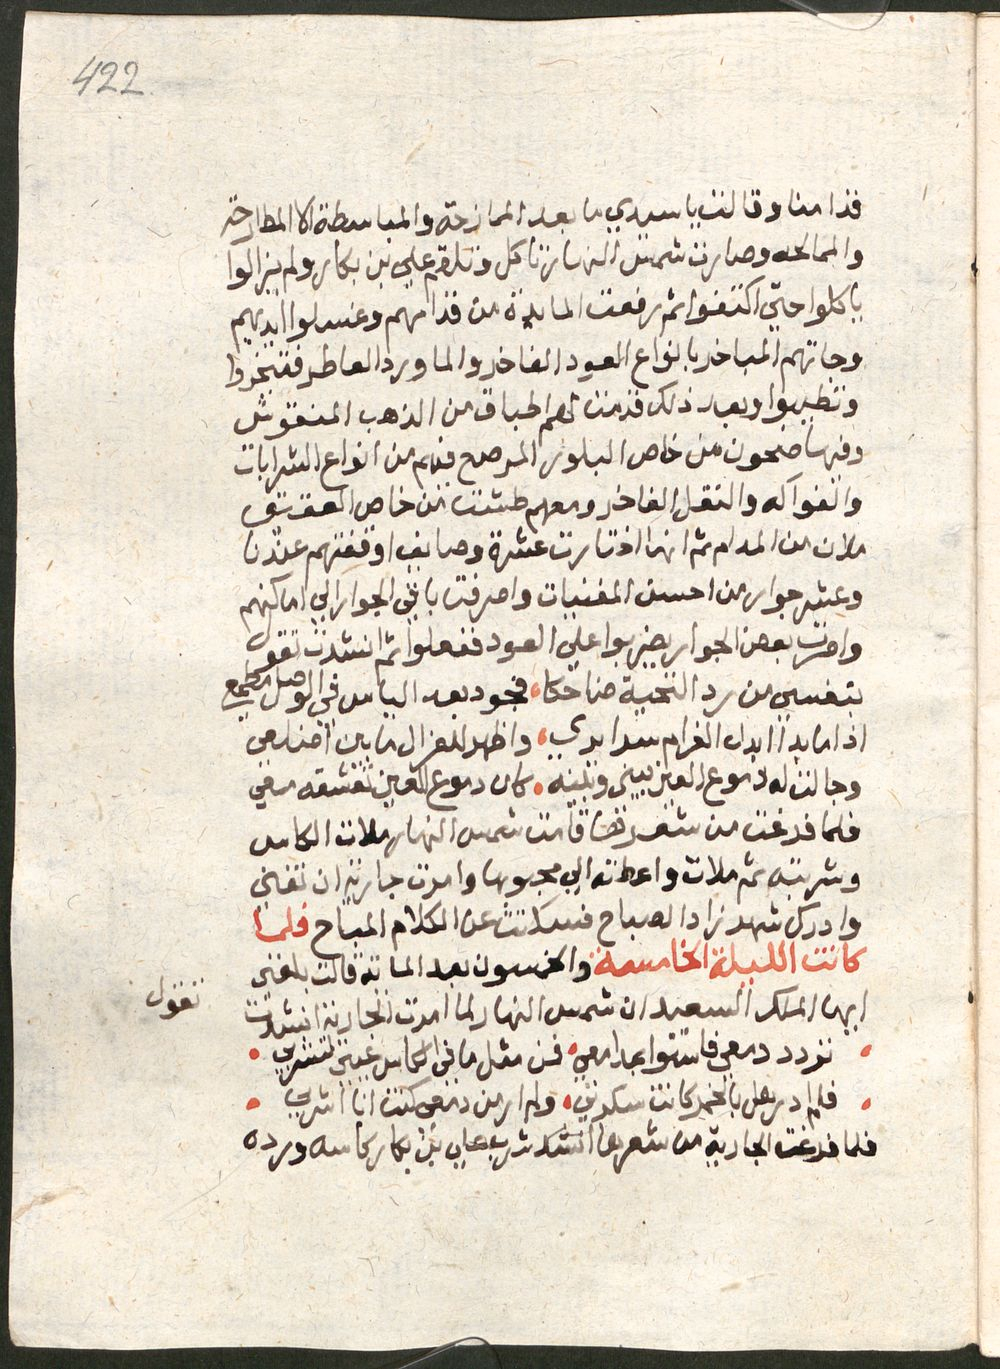 422
قدامنا وقالت يا سيدي ما بعد الممازحة والمباسطة الا المطارحة
والممالحه وصارت شمس النهار تاكل وتلقم علي بن بكار ولم يزالوا
ياكلوا حتي اكتفوا ثم رفعت المايدة من قدامهم وغسلوا ايديهم
وجاتهم المباخر بانواع العود الفاخر والماورد العاطر فتبخروا
وتطيبوا وبعد ذلك قدمت لهم اطباق من الذهب المنقوش
وفيها صحون من خاص البلور المرصع فيهم من انواع الشرابات
والفواكه والنقل الفاخر ومعهم طشت من خاص العقيق
ملان من المدام ثم انها اختارت عشرة وصايف اوقفتهم عندنا
وعشر جوار من احسن المغنيات واصرفت باقي الجوار الي اماكنهم
وامرت بعض الجوار يضربوا علي العود ففعلوا ثم انشدت تقول
بنفسي من رد التحية ضاحكا، فجود بعد الياس في الوصل مطمع
اذا ما بدا ابدا الغرام سرايري، واظهر للعزال ما بين اضلعي
وحالت له دموع العين بيني وبينه، كان دموع العين تعشقه معي
فلما فرغت من شعرها قامت شمس النهار ملات الكاس
وشربته ثم ملات واعطته الي محبوبها وامرت جارية ان تغني
وادرك شهرزاد الصباح فسكتت عن الكلام المباح فلما
كانت الليلة الخامسة والخمسون بعد الماتة قالت بلغني
ايها الملك السعيد ان شمس النهار لما امرت الجارية انشدت
تقول
تورد دمعي فاستوا ومدامعي، فمن مثل ما في الكاس عيني تشربي
فلم ادر هل بالخمر كانت سكرتي، ولم ار من دمعي كنت انا اشربي
فلما فرغت الجارية من شعرها انشد شرب علي بن بكار كاسه ورده